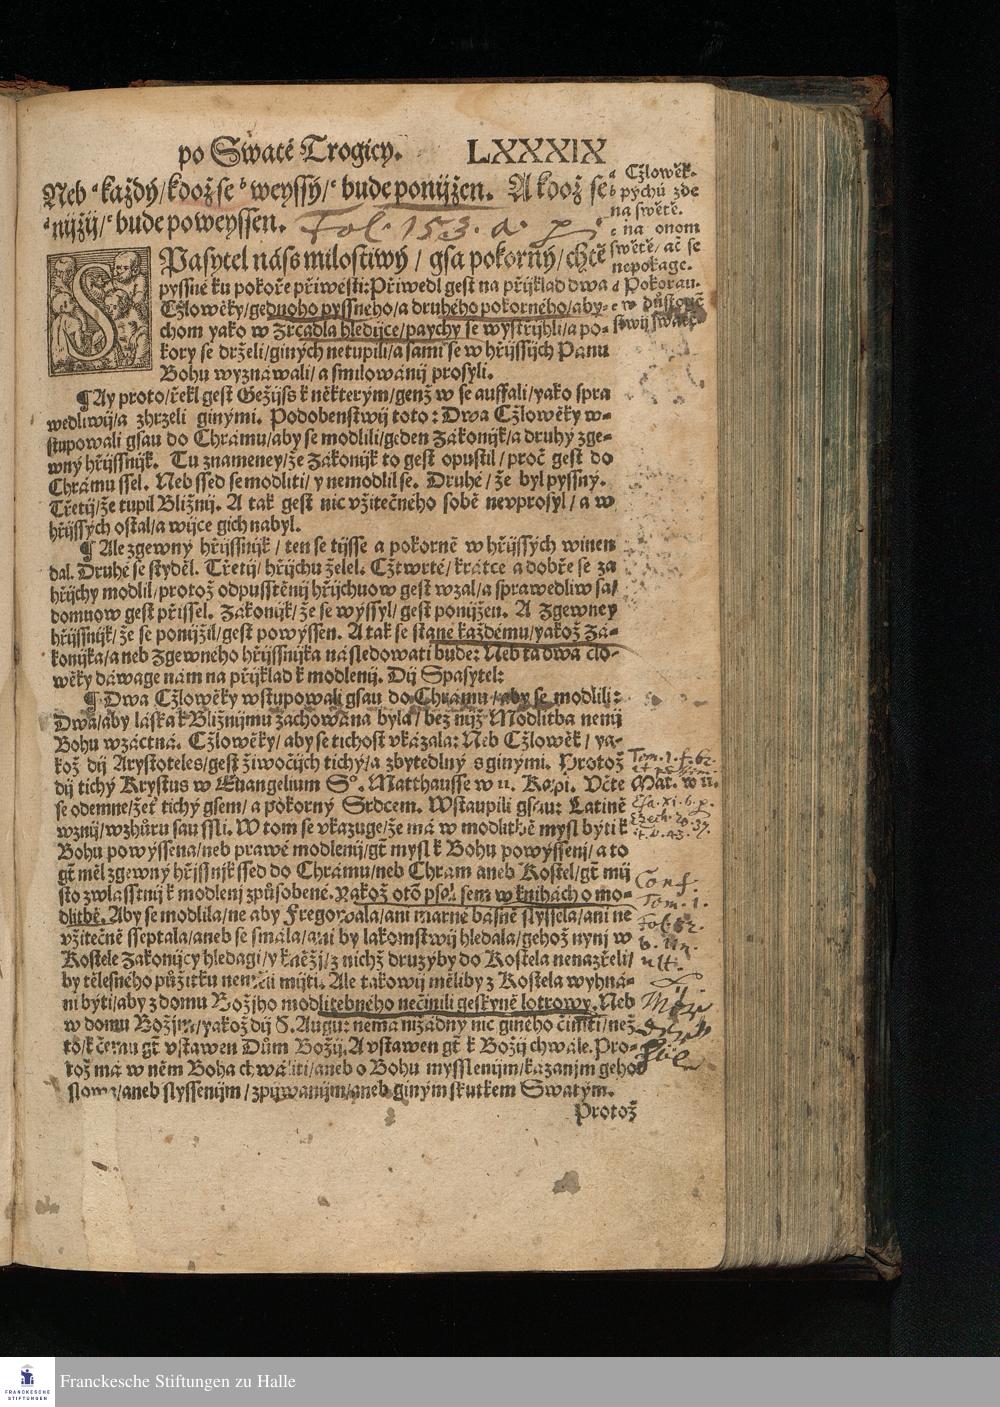 po Swaté Trogicy. LXXXIX
Neb ᵃkaždý/kdož se ᵇweyssý/ᶜbude ponijžen. A kdož se
ᵈnijžij/ᵉbude poweyssen. Fol. 153. a. p
ᵃ Cžlowěk.
ᵇ pýchú zde
na swětě.
ᶜ na onom
swětě/ ač se
nepokage.
ᵈ Pokorau
ᵉ w dussow
SPasytel náss milostiwý / gsa pokorný / chtě
pyssné ku pokoře přiwésti: Přiwedl gest na přijklad dwa
Cžlowěky/gednoho pyssného/a druhého pokorného/aby-
chom yako w Zrcadla hledijce/paychy se wystřijhli/a po-
kory se drželi/giných netupili/a sami se w hřijssých Pánu
Bohu wyznáwali/ a smilowánij prosyli.
¶ Ay proto/řekl gest Gežijss k některým/genž w se auffali/yako spra
wedliwij/a zhrzeli ginými. Podobenstwij toto: Dwa Cžlowěky w-
stupowali gsau do Chrámu/aby se modlili/geden Zákonijk/a druhý zge-
wný hřijssnijk. Tu znameney/že Zákonijk to gest opustil/proč gest do
Chrámu ssel. Neb ssed se modliti/ y nemodlil se. Druhé/ že byl pyssný.
Třetij/že tupil Bližnij. A tak gest nic vžitečného sobě nevprosyl/ a w
hřijssých ostal/a wijce gich nabyl.
¶ Ale zgewný hřijssnijk / ten se tijsse a pokorně w hřijssých winen
dal. Druhé se styděl. Třetij/ hřijchu želel. Cžtwrté/ krátce a dobře se za
hřijchy modlil/protož odpusstěnij hřijchuow gest wzal/a sprawedliw sa/
domuow gest přissel. Zákonijk/že se wýssyl/ gest ponijžen. A Zgewney
hřijssnijk/ že se ponijžil/gest powýssen. A tak se stane každému/yakož Zá-
konijka/a neb Zgewného hřijssnijka následowati bude: Neb ta dwa člo-
wěky dáwáge nám na přijklad k modlenij. Dij Spasytel:
¶ Dwa Cžlowěky wstupowali gsau do Chrámu /aby se modlili:
Dwa/aby láska k Bližnijmu zachowána byla/ bez nijž Modlitba nenij
Bohu wzáctná. Cžlowěky/ aby se tichost vkázala: Neb Cžlowěk/ ya-
kož dij Arystoteles/gest žiwočijch tichý/a zbytedlný s ginými. Protož
dij tichý Krystus w Ewangelium Sº. Matthausse w 11. Kapi. Včte
Mat. w 11.
se odemne/žeť tichý gsem/ a pokorný Srdcem. Wstaupili gsau: Latině
wznij/wzhůru sau ssli. W tom se vkazuge/že má w modlitbě mysl býti k
Bohu powýssena/neb prawé modlenij/gt mysl k Bohu powýssenj/ a to
gt měl zgewný hřijssnijk ssed do Chrámu/neb Chrám aneb Kostel/gt mij
sto zwlásstnij k modlenj způsobené. Yakož otō psal sem w knihách o mo-
dlitbě. Aby se modlila/ne aby Fregowala/ani marné básně slyssela/ani ne
vžitečné sseptala/aneb se smála/ani by lakomstwij hledala/gehož nynj w
Kostele Zákonijcy hledagj/y kněžj/z nichž druzý by do Kostela nenazřeli/
by tělesného půžitku neměli mijti. Ale takowij měli by z Kostela wyhná-
ni býti/aby z domu Božjho modlitebného nečinili geskyně lotrowy. Neb
w domu Božjm/yakož dij S. Augu: nemá nižádný nic giného činiti/než
to/k čemu gt vstawen Dům Božij. A vstawen gt k Božij chwále. Pro-
tož má w něm Boha chwáliti/aneb o Bohu mysslenijm/kázanjm geho
slowa/aneb slyssenijm / zpijwanijm/aneb giným skutkem Swatým.
Protož
Conf.
Tom. 1.
Franckesche Stiftungen zu Halle
FRANCKESCHE
STIFTUNGEN